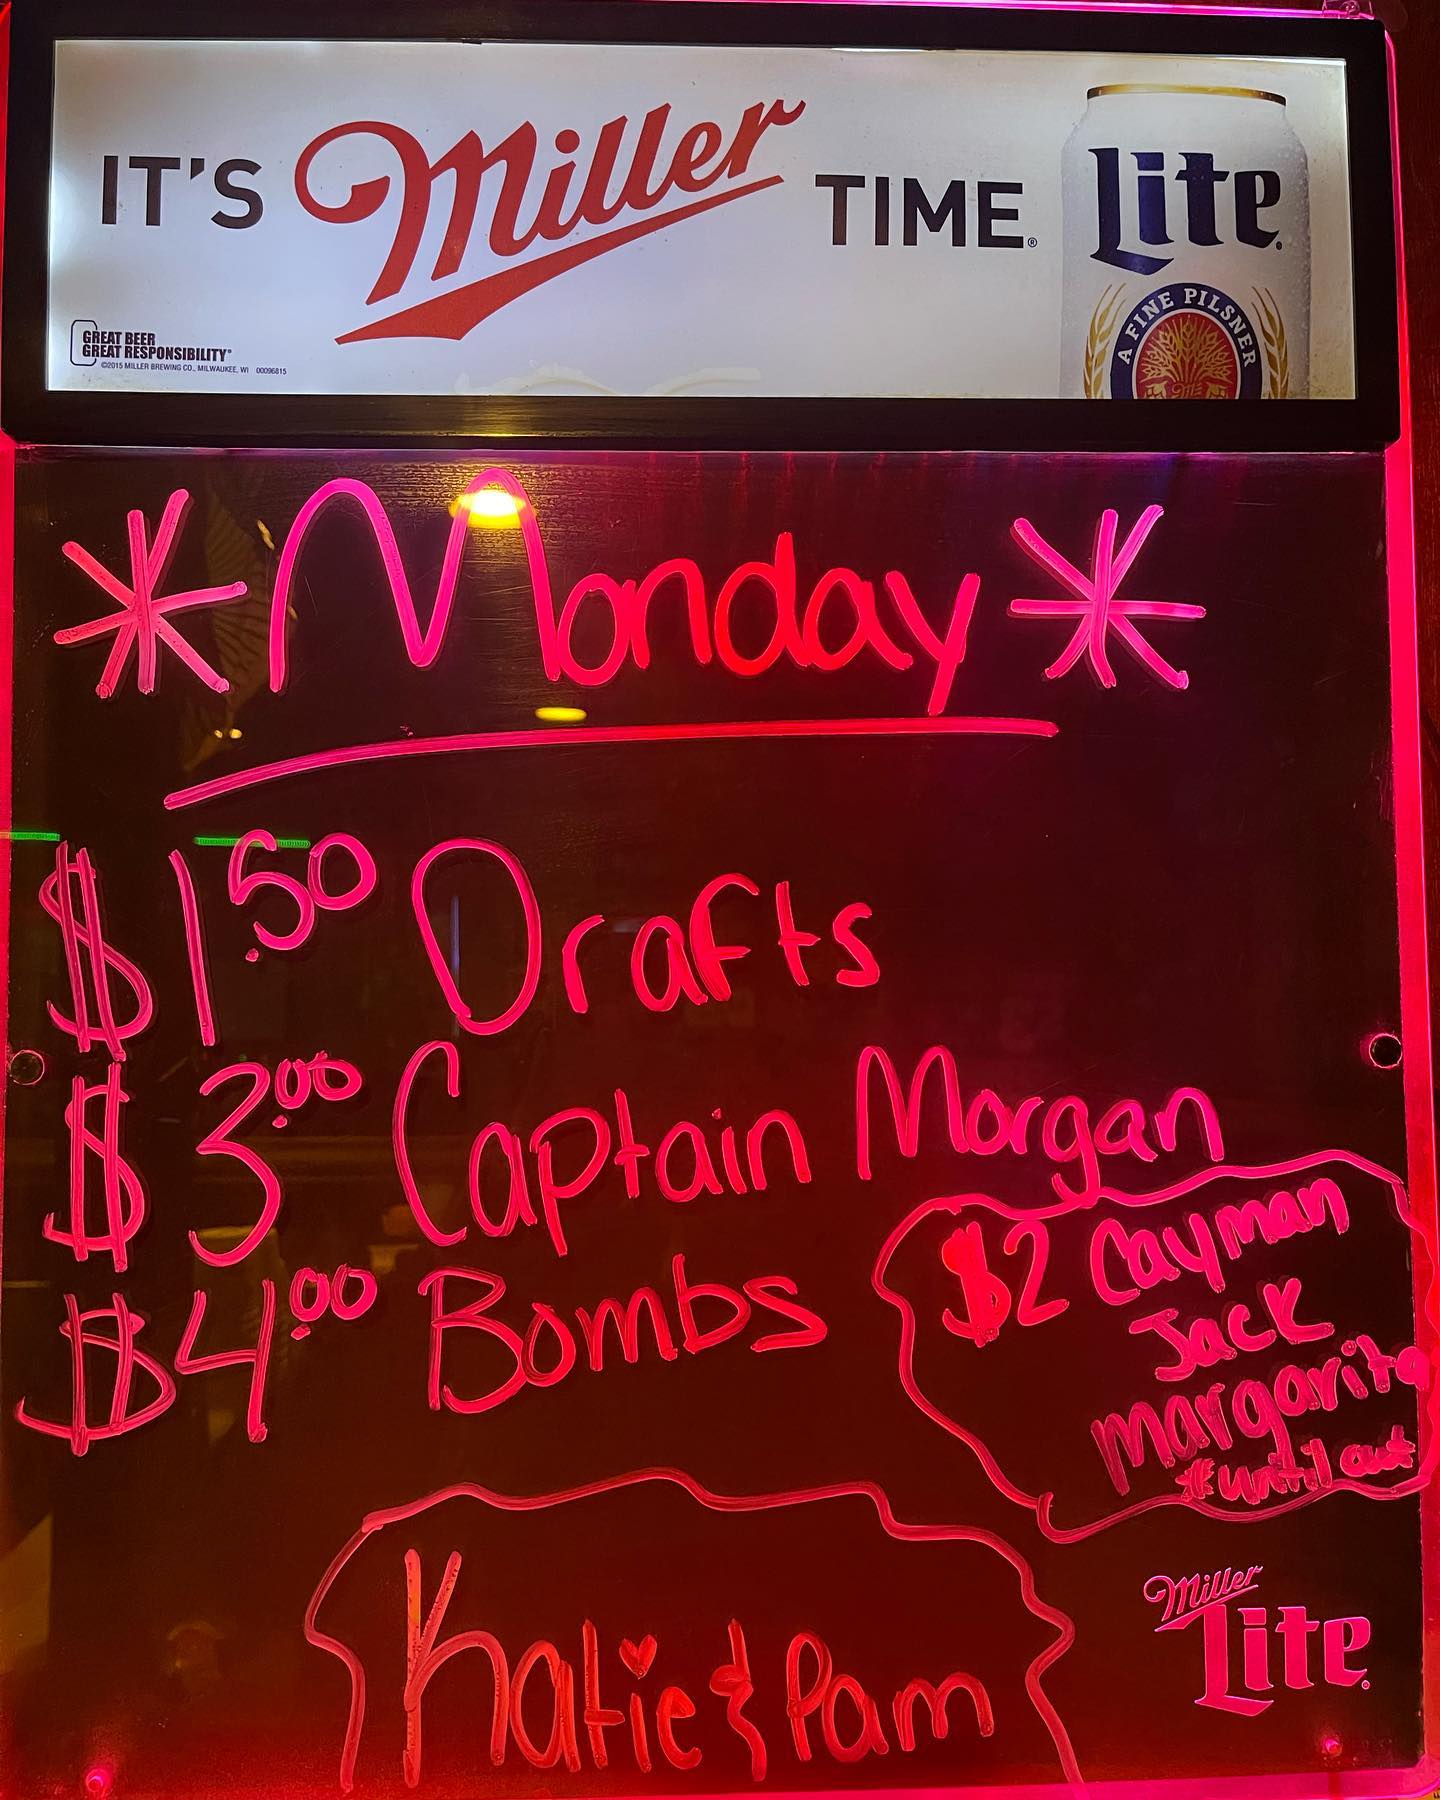 IT'S Miller TIME.®
Lite
A FINE PILSNER
GREAT BEER
GREAT RESPONSIBILITY®
©2015 MILLER BREWING CO., MILWAUKEE, WI 00096815
*Monday*
$1.50 Drafts
$3.00 Captain Morgan
$4.00 Bombs
$2 Cayman
Jack
margarita
*until out
Katie & Pam
Miller
Lite